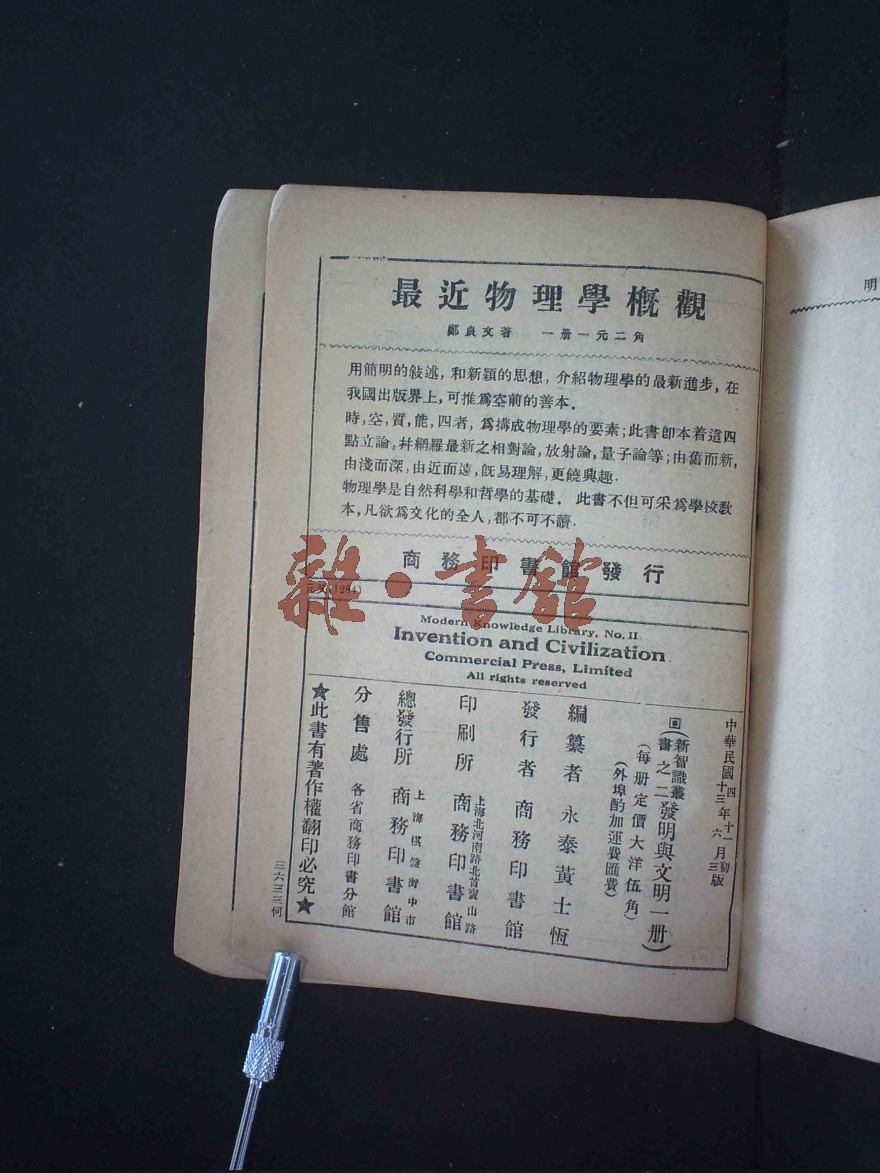 最近物理學概觀
鄭貞文著 一册一元二角
用簡明的敍述，和新穎的思想，介紹物理學的最新進步，在
我國出版界上，可推爲空前的善本．
時，空，質，能，四者，爲搆成物理學的要素；此書卽本着這四
點立論，幷網羅最新之相對論，放射論，量子論等；由舊而新，
由淺而深，由近而遠，旣易理解，更饒興趣．
物理學是自然科學和哲學的基礎． 此書不但可采爲學校敎
本，凡欲爲文化的全人，都不可不讀．
商務印書館發行
雜·書館
(1284)
Modern Knowledge Library, No. II
Invention and Civilization
Commercial Press, Limited
All rights reserved
中華民國十三年四六月初三版
十一
(新智識叢書之二)發明與文明一册)
(每册定價大洋伍角)
(外埠酌加運費匯費)
編纂者 永泰黃士恆
發行者 商務印書館
印刷所 上海北河南路北首寶山路 商務印書館
總發行所 上海棋盤街中市 商務印書館
分售處 各省商務印書分館
★此書有著作權翻印必究★
三六三三何
明